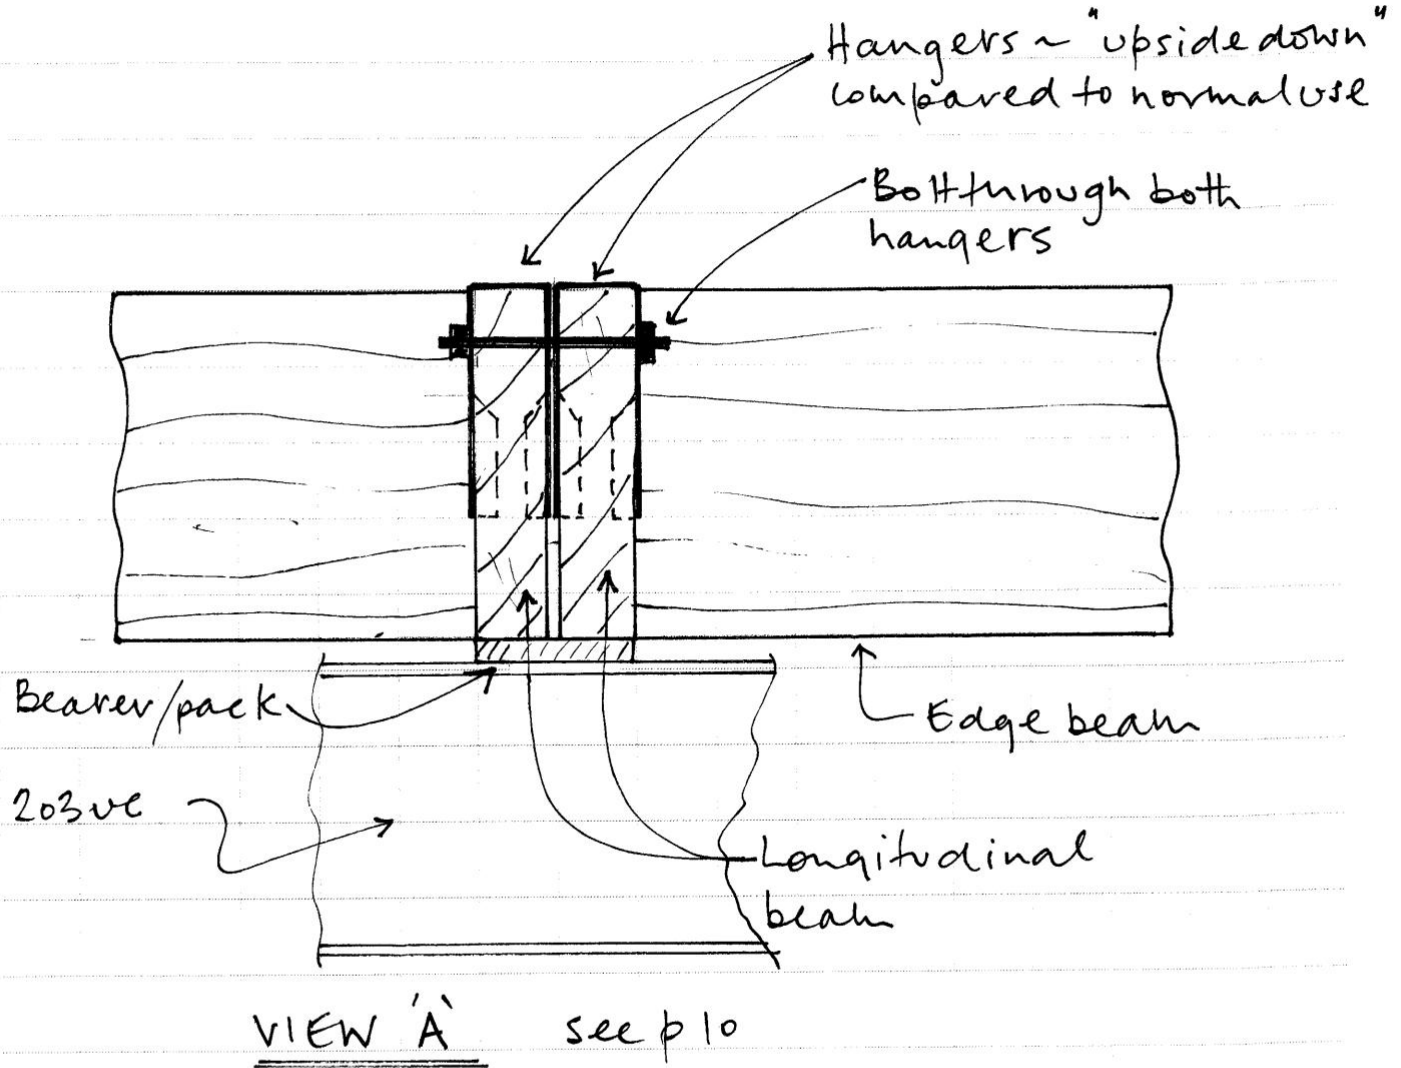 Hangers ~ "upside down"
compared to normal use
Bolt through both
hangers
Bearer/pack
Edge beam
203uc
Longitudinal
beam
VIEW 'A' see p10